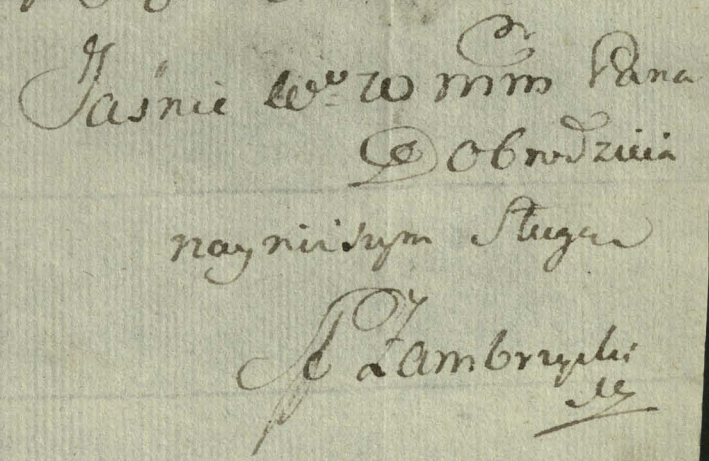 Jaśnie W° WMM Pana
Dobrodzieia
nayniższym sługą
Zambrzycki